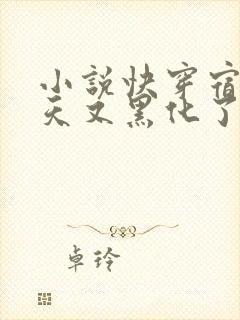 小说快穿宿
天又黑化了
卓玲